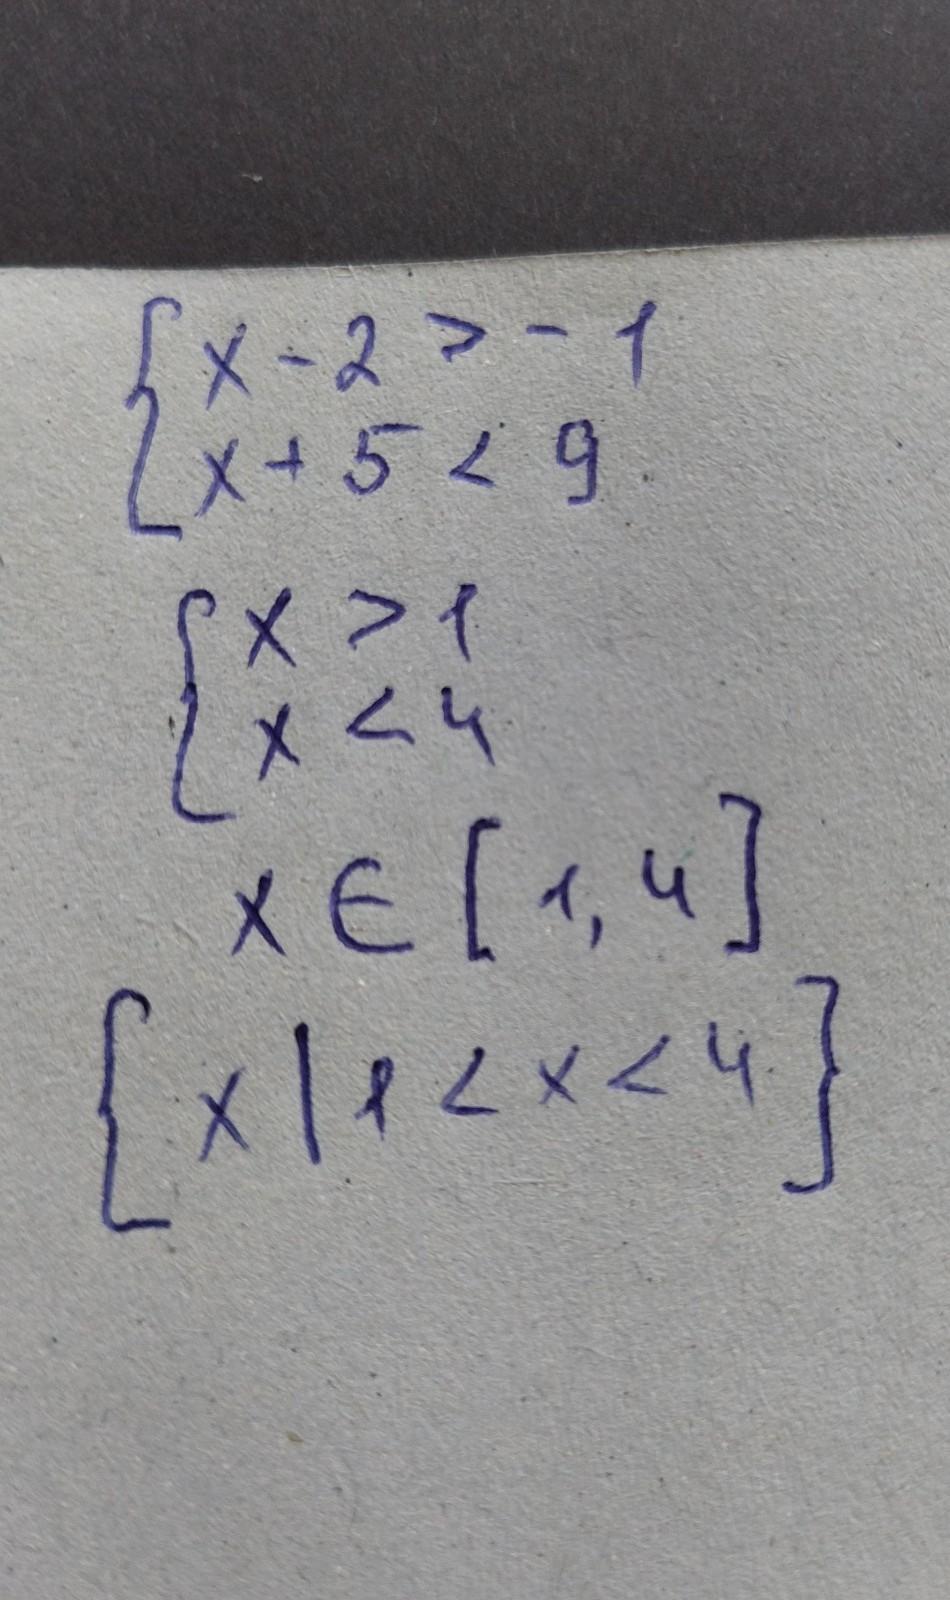 { x - 2 > - 1
x + 5 < 9
{ x > 1
x < 4
x ∈ [1, 4]
{ x | 1 < x < 4 }